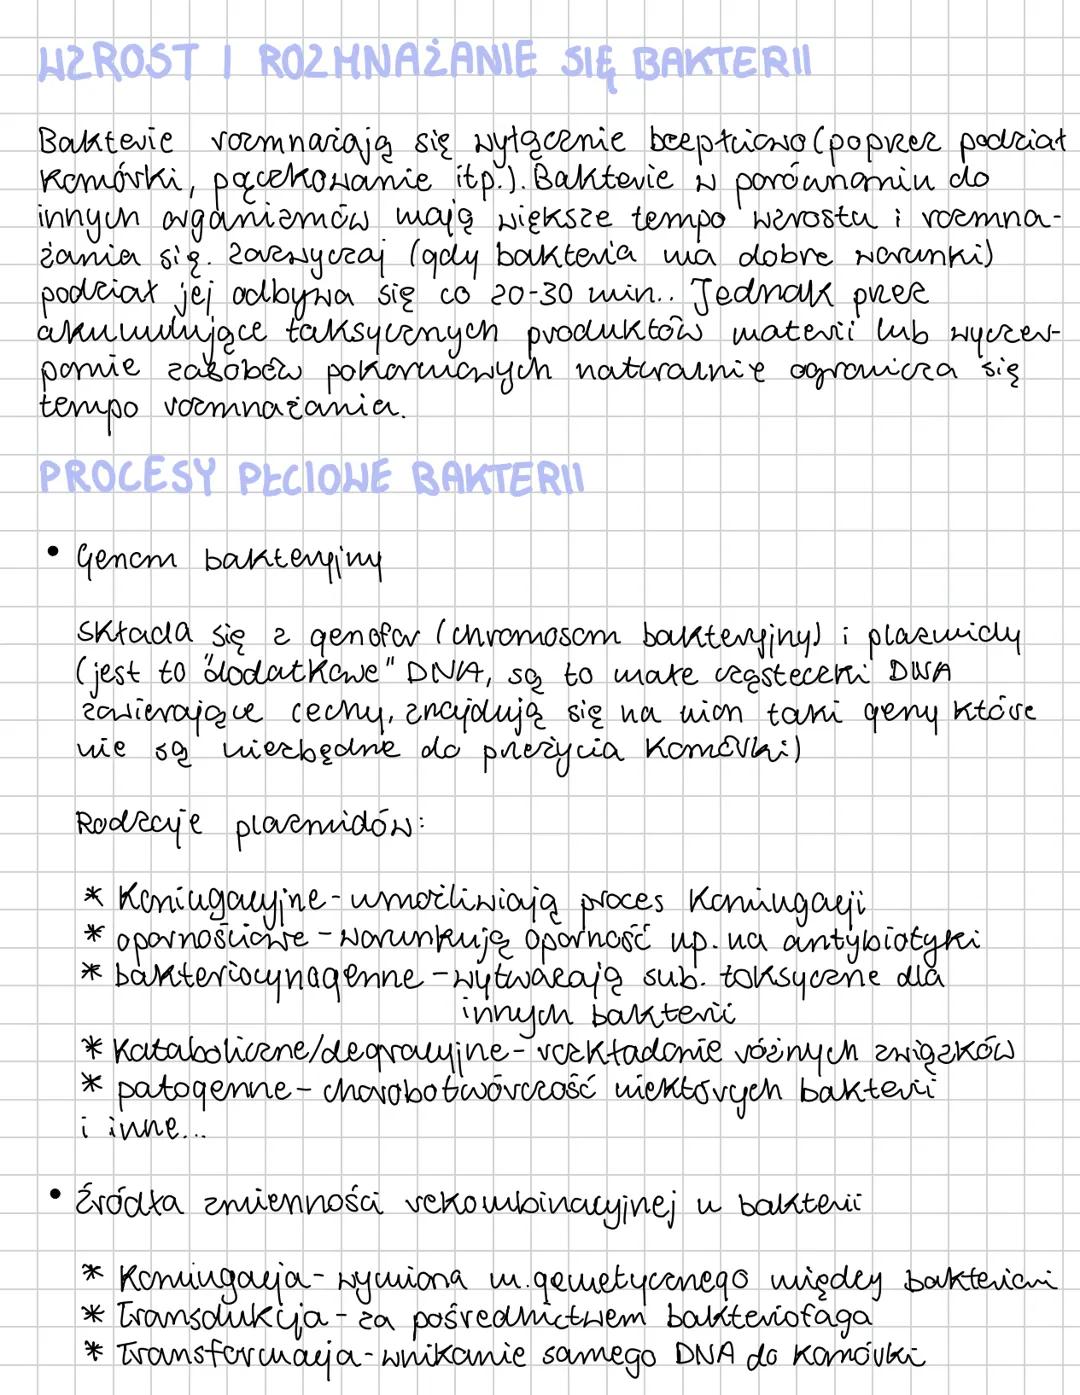 WZROST I ROZMNAŻANIE SIĘ BAKTERII
Bakterie rozmnażają się wyłącznie bezpłciowo (poprzez podział
komórki, pączkowanie itp.). Bakterie w porównaniu do
innych organizmów mają większe tempo wzrostu i rozmna-
żania się. Zazwyczaj (gdy bakteria ma dobre warunki)
podział jej odbywa się co 20-30 min.. Jednak przez
akumulujące toksycznych produktów materii lub wyczer-
panie zasobów pokarmowych naturalnie ogranicza się
tempo rozmnażania.
PROCESY PŁCIOWE BAKTERII
• Genom bakteryjny
Składa się z genofor (chromosom bakteryjny) i plazmidy
(jest to "dodatkowe" DNA, są to małe cząsteczki DNA
zawierające cechy, znajdują się na nich taki geny które
nie są niezbędne do przeżycia komórki)
Rodzaje plazmidów:
* Koniugacyjne - umożliwiają proces koniugacji
* opornościowe - warunkują oporność np. na antybiotyki
* bakteriocynogenne - wytwarzają sub. toksyczne dla
innych bakterii
* Kataboliczne/degracyjne - rozkładanie różnych związków
* patogenne - chorobotwórczość niektórych bakterii
i inne...
• Źródła zmienności rekombinacyjnej u bakterii
* Koniugacja - wymiana m. genetycznego między bakteriami
* Transdukcja - za pośrednictwem bakteriofaga
* Transformacja - wnikanie samego DNA do komórki